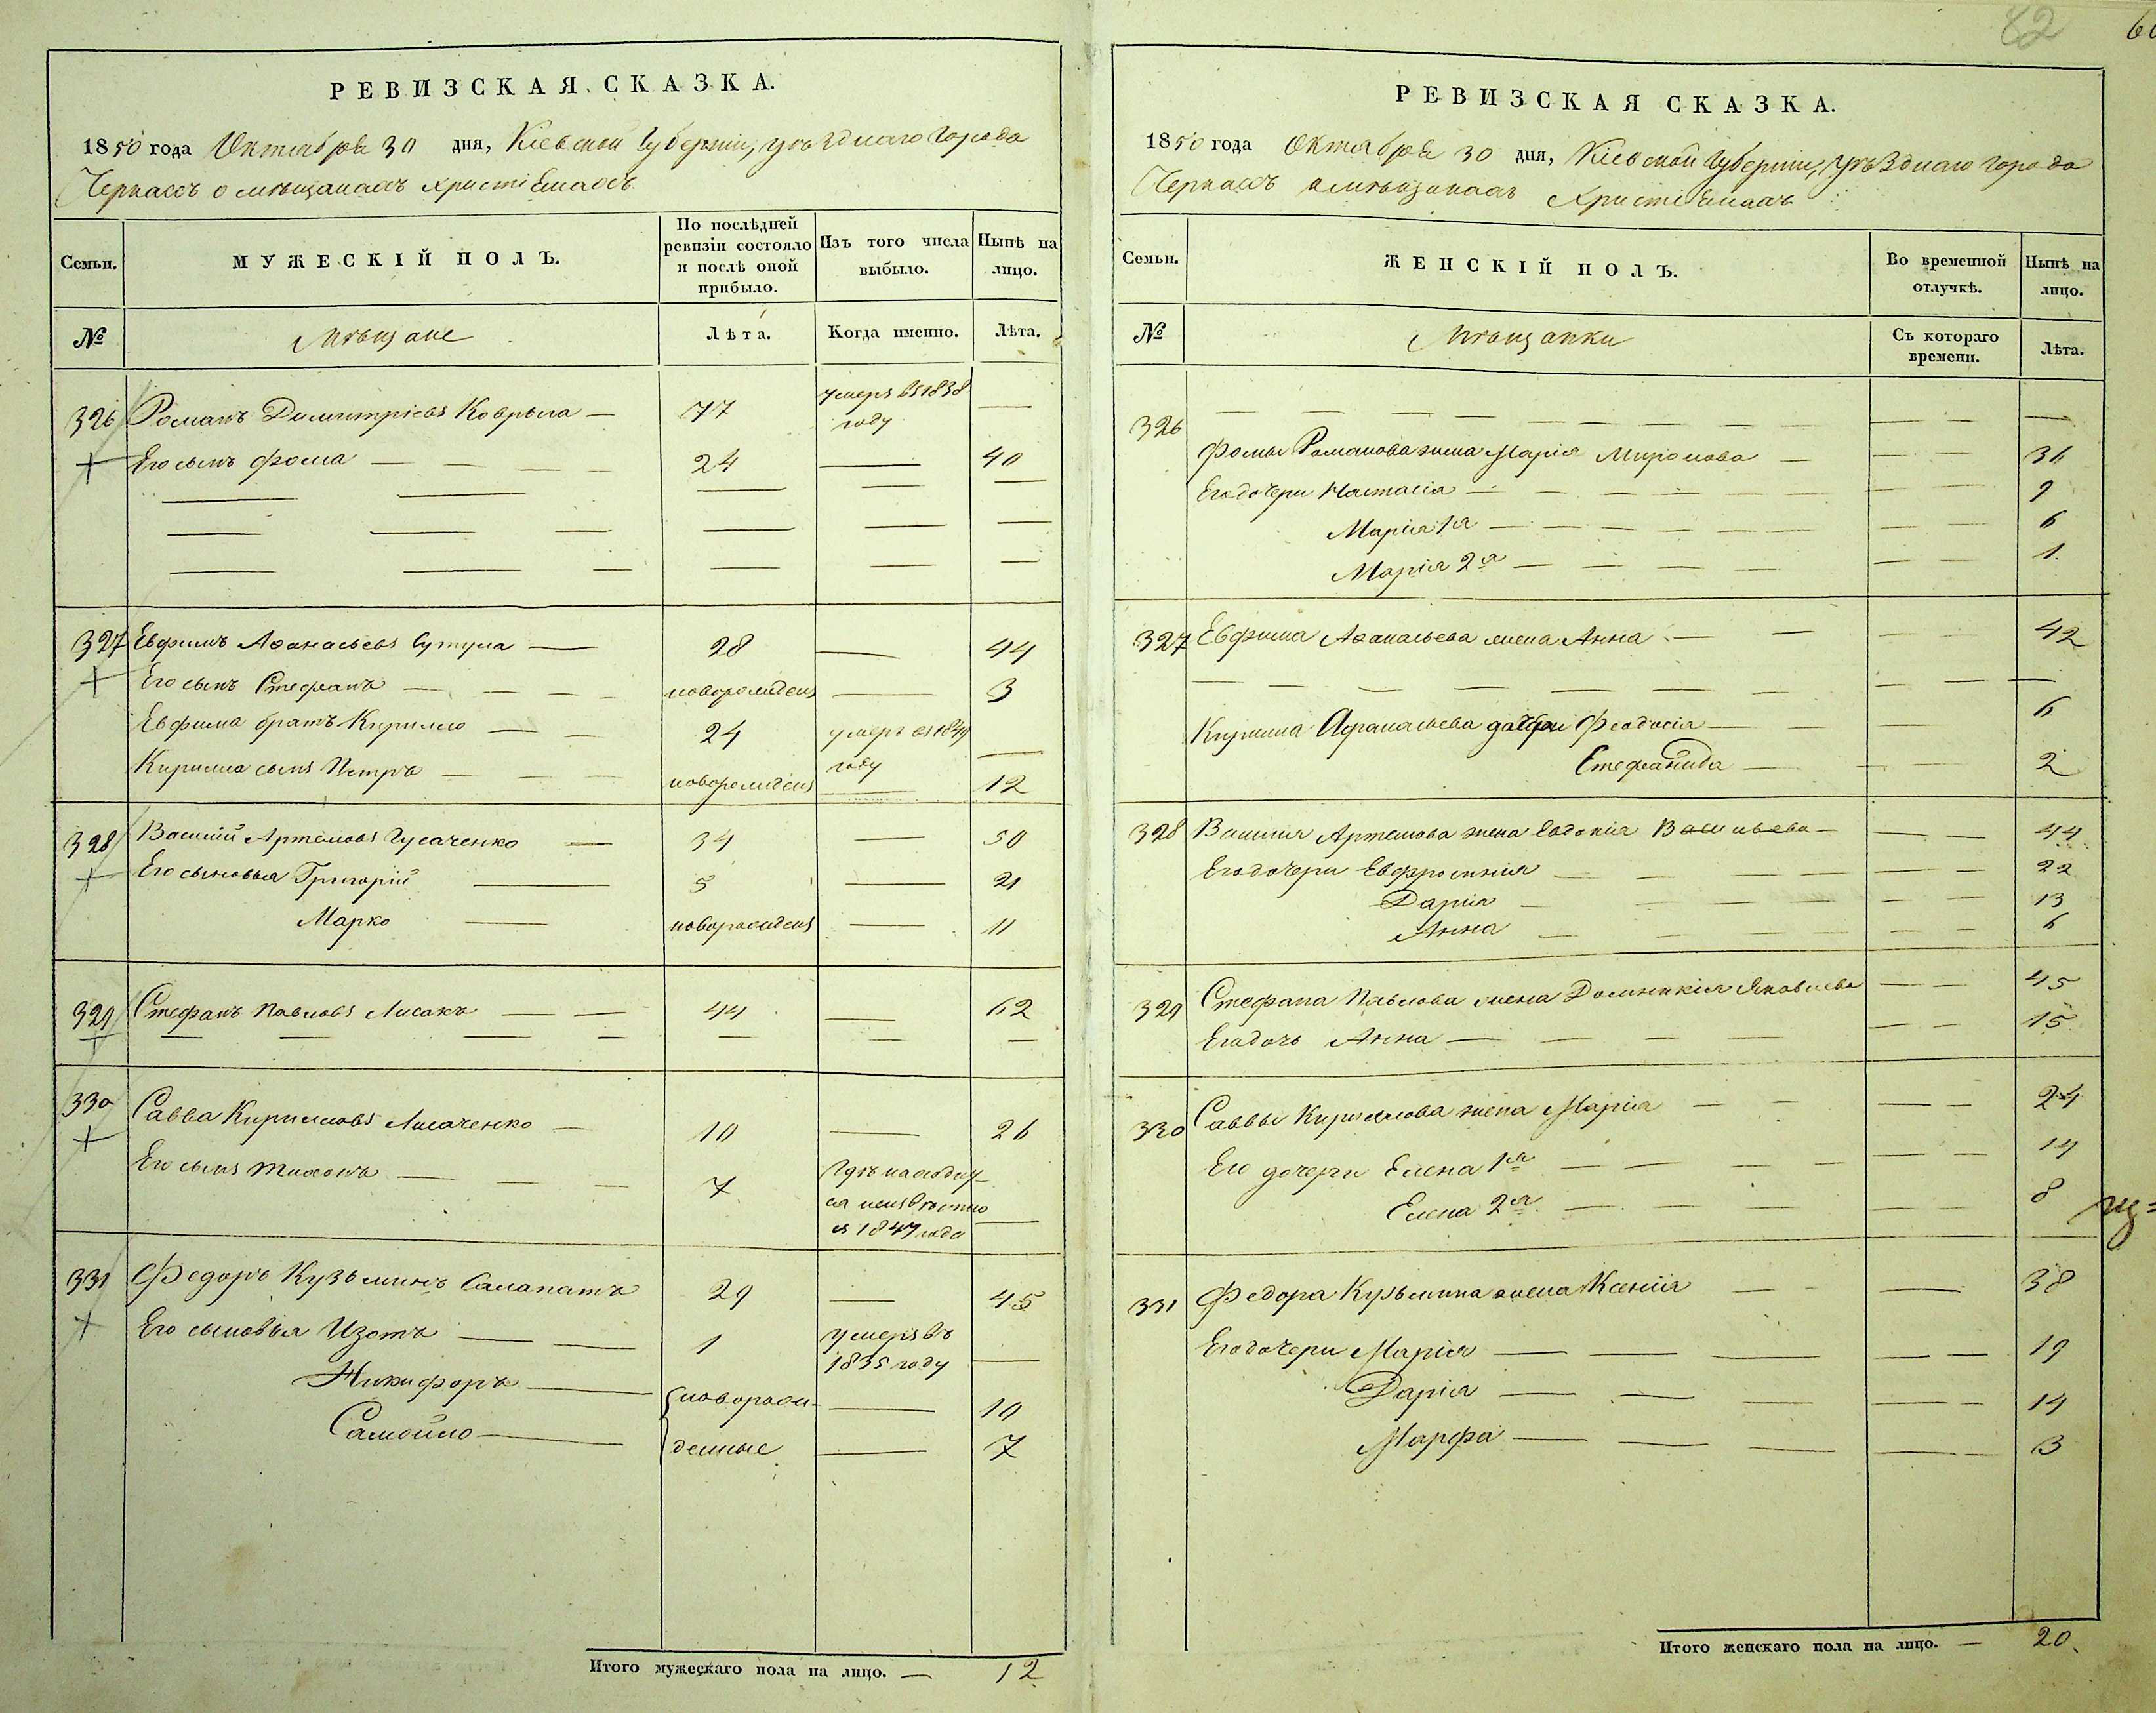 82
РЕВИЗСКАЯ СКАЗКА.
1850 года Октября 30 дня, Кіевской Губерніи, уѣзднаго города
Черкасъ о мѣщанахъ христіянахъ
Семьи.
МУЖЕСКІЙ ПОЛЪ.
По послѣдней ревизіи состояло и послѣ оной прибыло.
Изъ того числа выбыло.
Нынѣ на лицо.
№
Мѣщане
Лѣта.
Когда именно.
Лѣта.
326 Романъ Димитріевъ — 77 умеръ въ 1838 году —
Его сынъ Фома — — — — 24 — 40
327 Евфимъ Афанасьевъ Сутула — 28 — 44
Его сынъ Стефанъ — — — — новорожденъ — 3
Евфима братъ Кирилло — — — 24 умеръ въ 1849 году —
Кирилла сынъ Петръ — — — новорожденъ — 12
328 Василій Артемовъ Гусаченко — 34 — 50
Его сыновья Григорій — 5 — 21
Марко — новорожденъ — 11
329 Стефанъ Павловъ Лисакъ — — 44 — 62
330 Савва Кирилловъ Лисаченко — 10 — 26
Его сынъ Тихонъ — — — 7 Гдѣ находит-
ся неизвѣстно
съ 1847 года —
331 Федоръ Кузьминъ Салапатъ 29 — 45
Его сыновья Изотъ — — 1 Умеръ въ 1835 году —
Никифоръ — новорож- — 10
Самойло — денные — 7
Итого мужескаго пола на лицо. — 12
РЕВИЗСКАЯ СКАЗКА.
1850 года Октября 30 дня, Кіевской Губерніи, уѣзднаго города
Черкасъ о мѣщанахъ Христіянахъ
Семьи.
ЖЕНСКІЙ ПОЛЪ.
Во временной отлучкѣ.
Нынѣ на лицо.
№
Мѣщанки
Съ котораго времени.
Лѣта.
326 — — — — — — — — —
Фомы Романова жена Марія Миронова — — — 36
Его дочери Настасія — — — — — — 9
Марія 1я — — — — — — 6
Марія 2я — — — — — — 1
327 Евфима Афанасьева жена Анна — — — 42
Кирилла Афанасьева дочери Феодосія — — — 6
Стефанида — — — 2
328 Василія Артемова жена Евдокія Васильева — — — 44
Его дочери Евфросинія — — — — — 22
Дарія — — — — — — 13
Анна — — — — — — 6
329 Стефана Павлова жена Домникія Яковлева — — 45
Его дочь Анна — — — — — — 15
330 Саввы Кириллова жена Марія — — — — 24
Его дочери Елена 1я — — — — — — 14
Елена 2я — — — — — — 8
331 Федора Кузьмина жена Ксенія — — — 38
Его дочери Марія — — — — — 19
Дарія — — — — — 14
Марфа — — — — — 3
Итого женскаго пола на лицо. — 20.